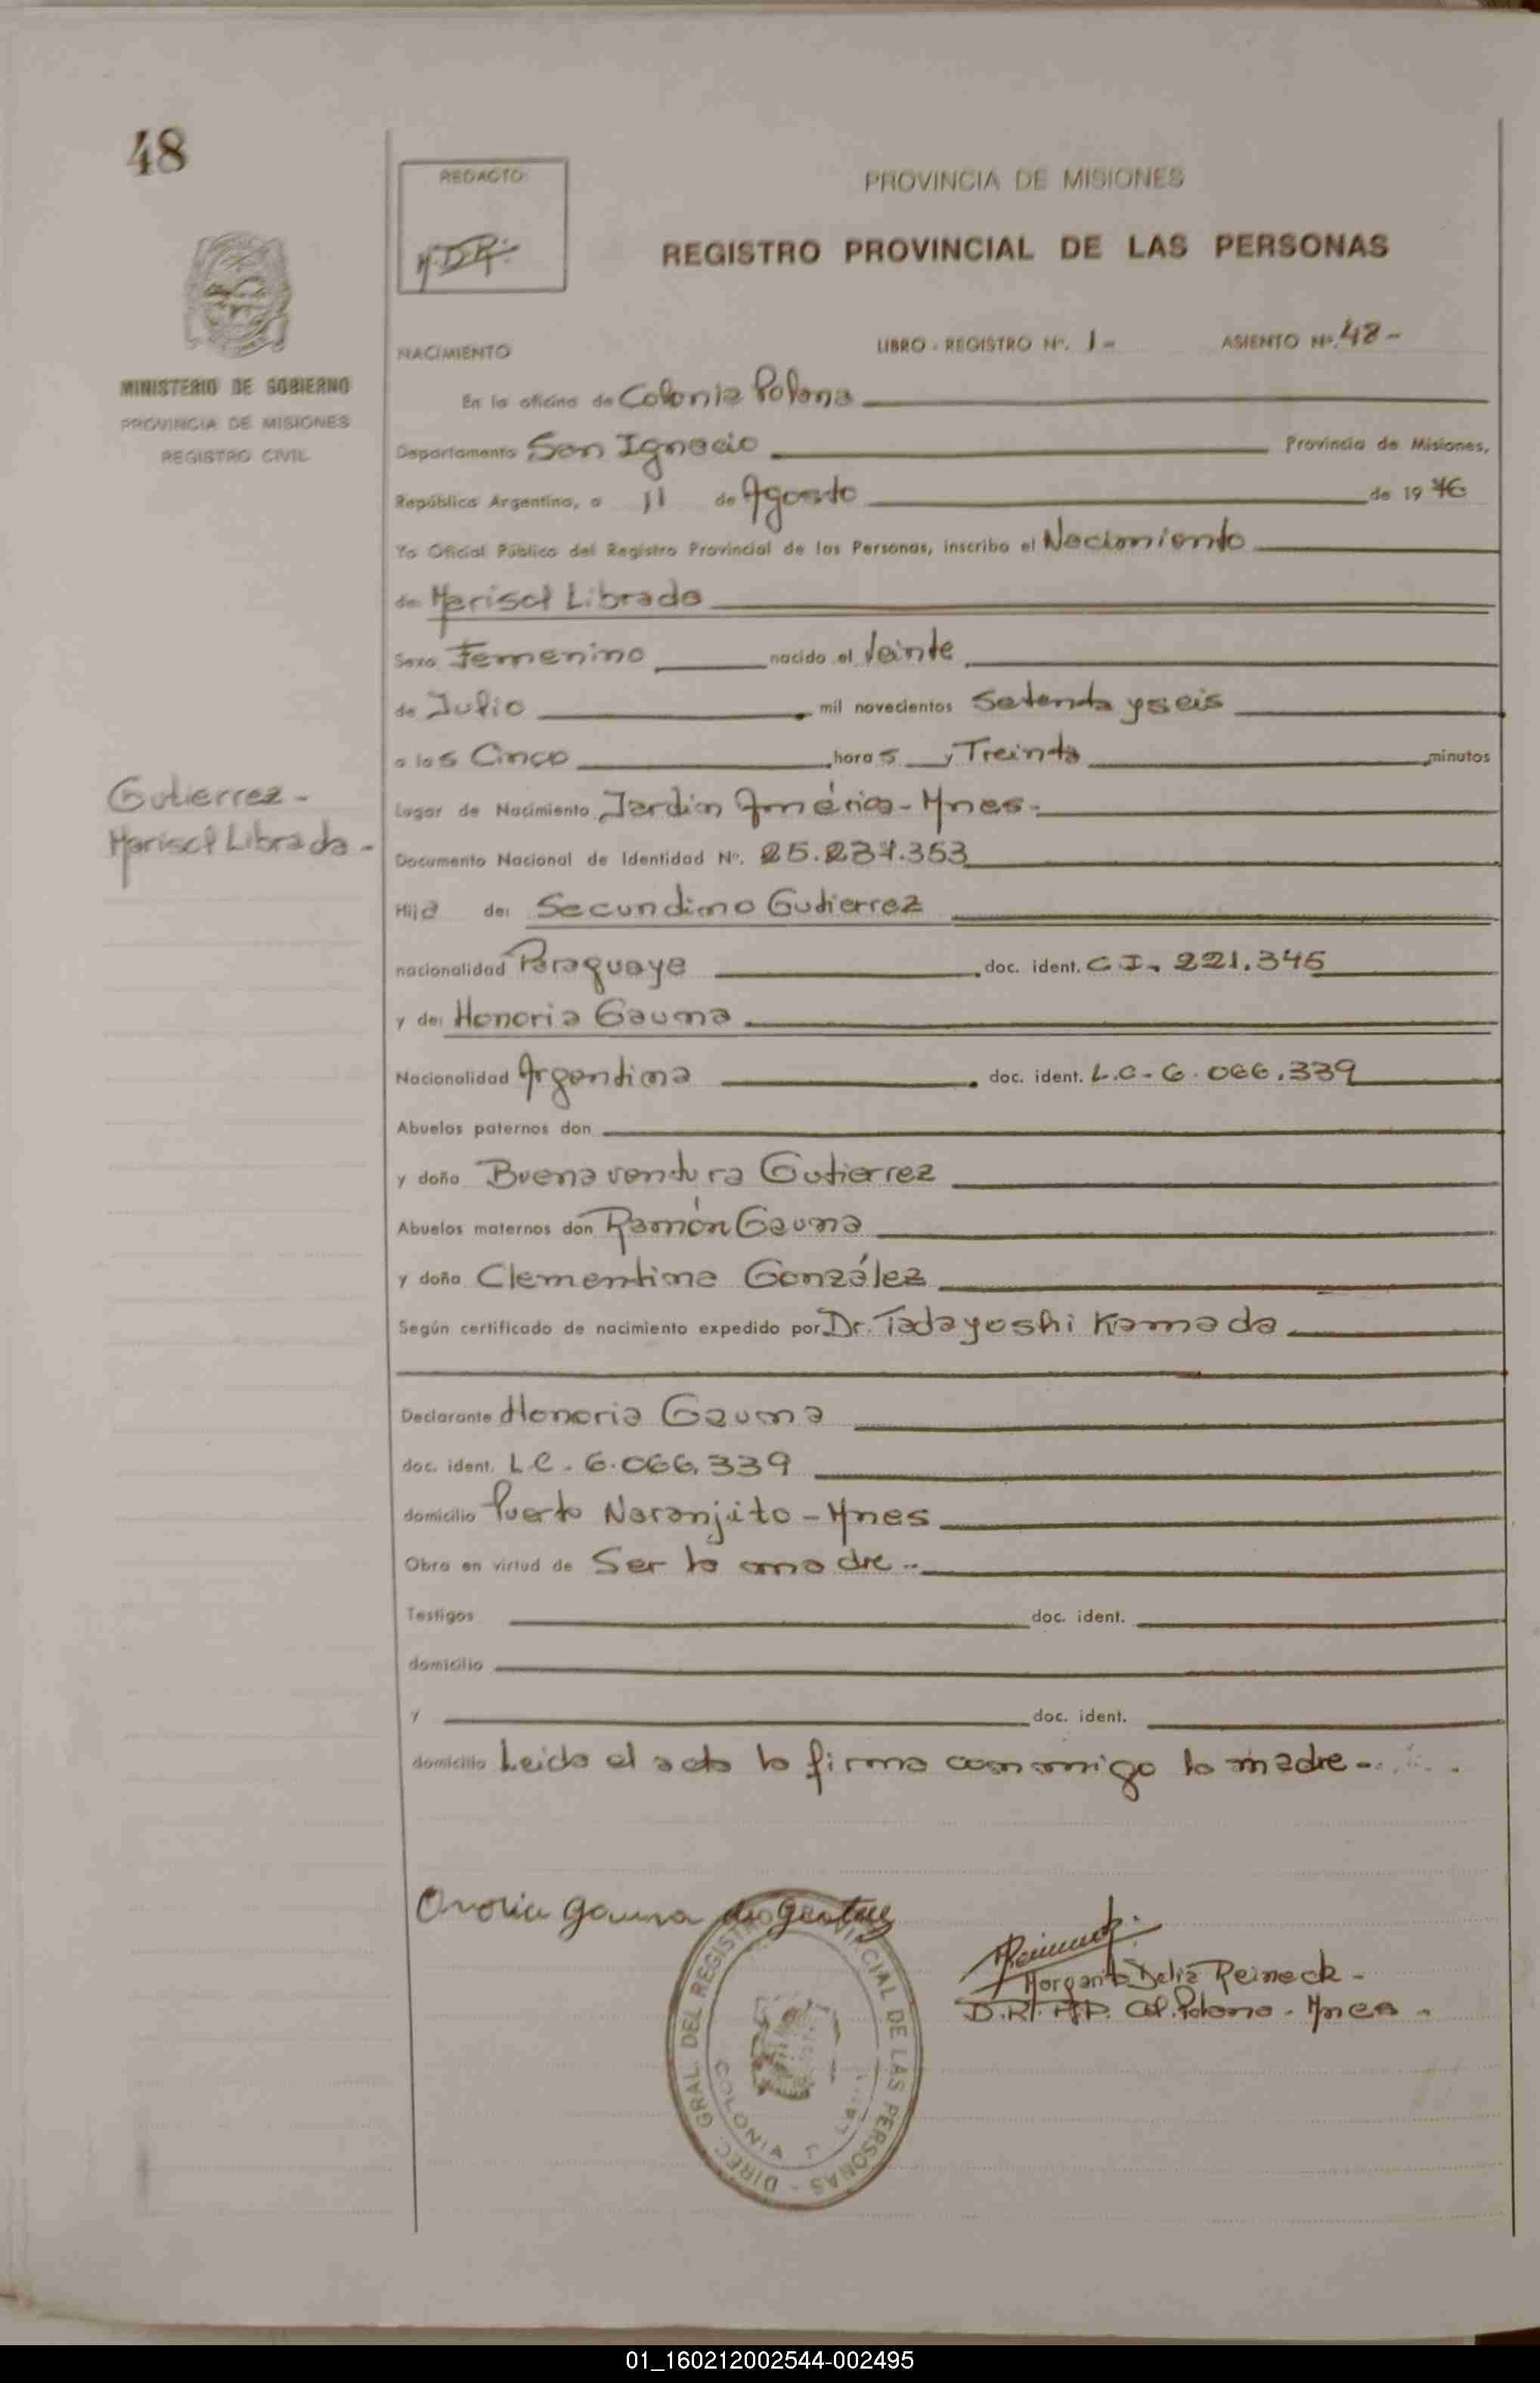 48
REDACTO:
M.D.R.
PROVINCIA DE MISIONES
REGISTRO PROVINCIAL DE LAS PERSONAS
MINISTERIO DE GOBIERNO
PROVINCIA DE MISIONES
REGISTRO CIVIL
NACIMIENTO LIBRO - REGISTRO Nº. 1- ASIENTO Nº. 48-
En la oficina de Colonia Polana
Departamento San Ignacio Provincia de Misiones,
República Argentina, a 11 de Agosto de 19 76
Yo Oficial Público del Registro Provincial de las Personas, inscribo el Nacimiento
de: Marisol Librada
Sexo Femenino nacido el Veinte
de Julio mil novecientos Setenta y seis
a las Cinco horas y Treinta minutos
Gutierrez-
Marisol Librada-
Lugar de Nacimiento Jardin América-Mnes-
Documento Nacional de Identidad Nº. 25.237.353
Hija de: Secundino Gutierrez
nacionalidad Paraguaya doc. ident. C.I. 221.345
y de: Honoria Gauna
Nacionalidad Argentina doc. ident. L.C-6.066.339
Abuelos paternos don
y doña Buenaventura Gutierrez
Abuelos maternos don Ramón Gauna
y doña Clementina González
Según certificado de nacimiento expedido por Dr. Tadayoshi Kamada
Declarante Honoria Gauna
doc. ident. L.C. 6.066.339
domicilio Puerto Naranjito-Mnes
Obra en virtud de Ser la madre-
Testigos doc. ident.
domicilio
y doc. ident.
domicilio Leida el acta la firma conmigo la madre-
Onoria gauna de
Margarita Delia Reineck-
Col. Polana-Mnes-
DIREC. GRAL. DEL REGISTRO PROVINCIAL DE LAS PERSONAS -
COLONIA
01_160212002544-002495